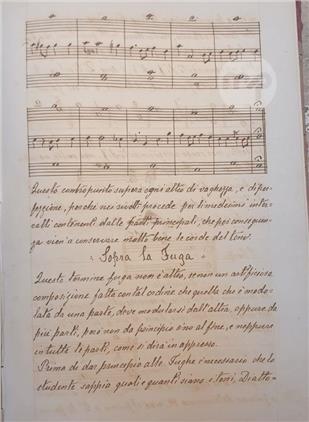 Questo contropunto supera ogni altro di vaghezza, e di
posizione, perchè nei rivolti procede per i medesimi inter-
valli contenenti dalle parti principali, che per conseguen-
za vien a conservare molto bene le corde del tono.
Sopra la Fuga
Questo termine fuga non è altro, se non un artificiosa
composizione fatta con tal ordine che quella che è modu-
lata da una parte, deve modularsi dall'altra, oppure da
più parti, però non da principio sino al fine, e neppure
in tutte le parti, come si dirà in appresso.
Prima di dar principio alle Fughe è necessario che lo
studente sappia quali e quanti siano i toni, Di alto-